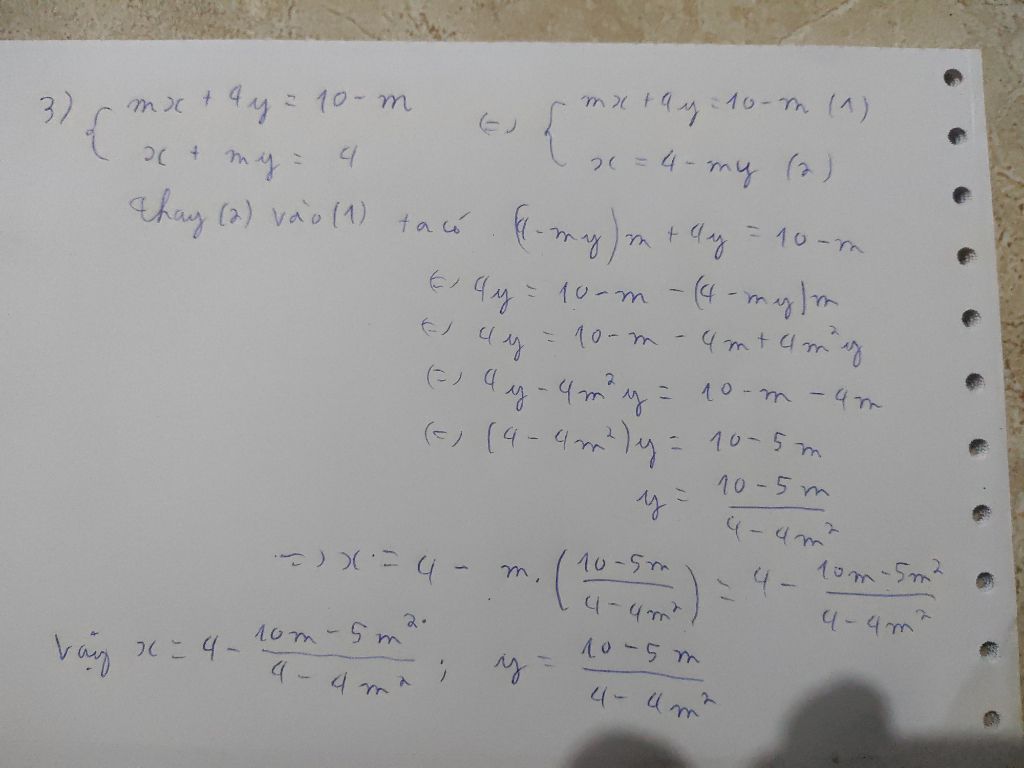 3) { mx + 4y = 10 - m (=) { mx + 4y = 10 - m (1)
x + my = 4 x = 4 - my (2)
thay (2) vào (1) ta có (4 - my)m + 4y = 10 - m
(=) 4y = 10 - m - (4 - my)m
(=) 4y = 10 - m - 4m + 4m²y
(=) 4y - 4m²y = 10 - m - 4m
(=) (4 - 4m²)y = 10 - 5m
y = (10 - 5m)/(4 - 4m²)
=) x = 4 - m.((10 - 5m)/(4 - 4m²)) = 4 - (10m - 5m²)/(4 - 4m²)
Vậy x = 4 - (10m - 5m²)/(4 - 4m²) ; y = (10 - 5m)/(4 - 4m²)